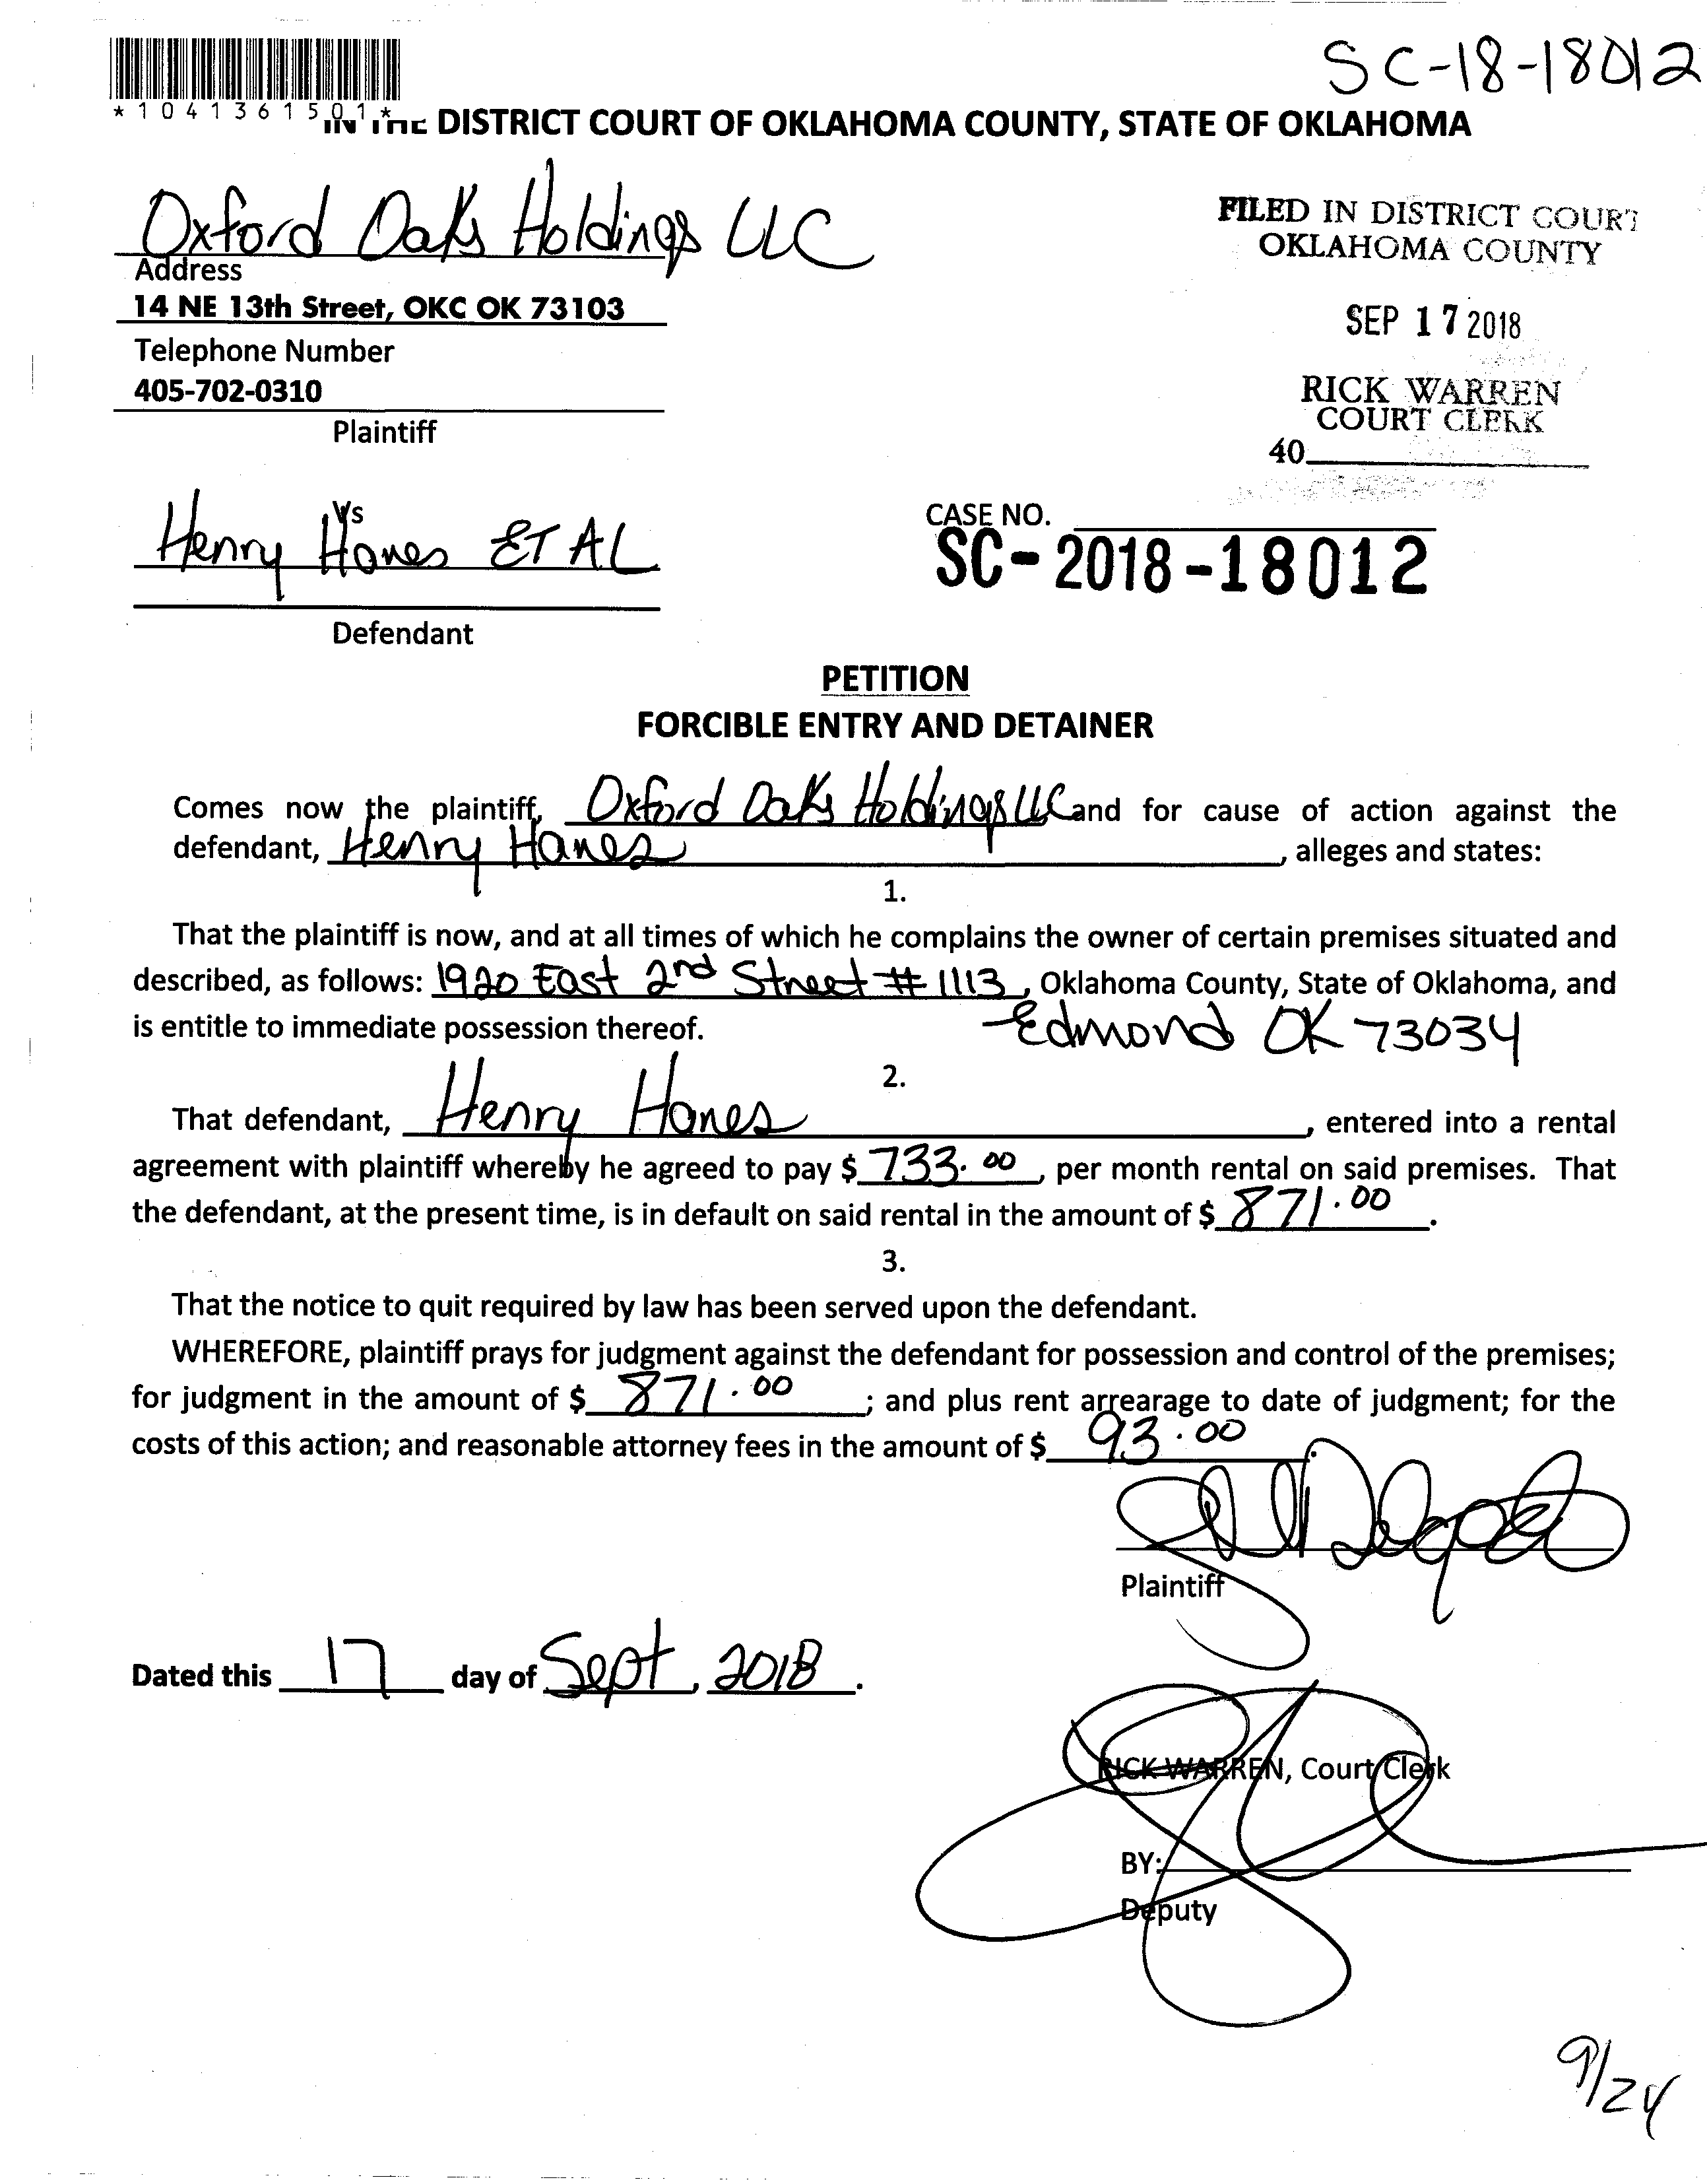 SC-18-18012
*1041361501*
IN THE DISTRICT COURT OF OKLAHOMA COUNTY, STATE OF OKLAHOMA
Oxford Oaks Holdings LLC
Address
14 NE 13th Street, OKC OK 73103
Telephone Number
405-702-0310
Plaintiff
FILED IN DISTRICT COURT
OKLAHOMA COUNTY
SEP 17 2018
RICK WARREN
COURT CLERK
40
Vs
Henry Hanes ET AL
Defendant
CASE NO.
SC-2018-18012
PETITION
FORCIBLE ENTRY AND DETAINER
Comes now the plaintiff, Oxford Oaks Holdings LLC and for cause of action against the
defendant, Henry Hanes, alleges and states:
1.
That the plaintiff is now, and at all times of which he complains the owner of certain premises situated and
described, as follows: 1920 East 2nd Street #1113, Oklahoma County, State of Oklahoma, and
is entitle to immediate possession thereof. Edmond OK 73034
2.
That defendant, Henry Hanes, entered into a rental
agreement with plaintiff whereby he agreed to pay $ 733.00, per month rental on said premises. That
the defendant, at the present time, is in default on said rental in the amount of $ 871.00.
3.
That the notice to quit required by law has been served upon the defendant.
WHEREFORE, plaintiff prays for judgment against the defendant for possession and control of the premises;
for judgment in the amount of $ 871.00; and plus rent arrearage to date of judgment; for the
costs of this action; and reasonable attorney fees in the amount of $ 93.00.
Plaintiff
Dated this 17 day of Sept, 2018.
RICK WARREN, Court Clerk
BY:
Deputy
9/24